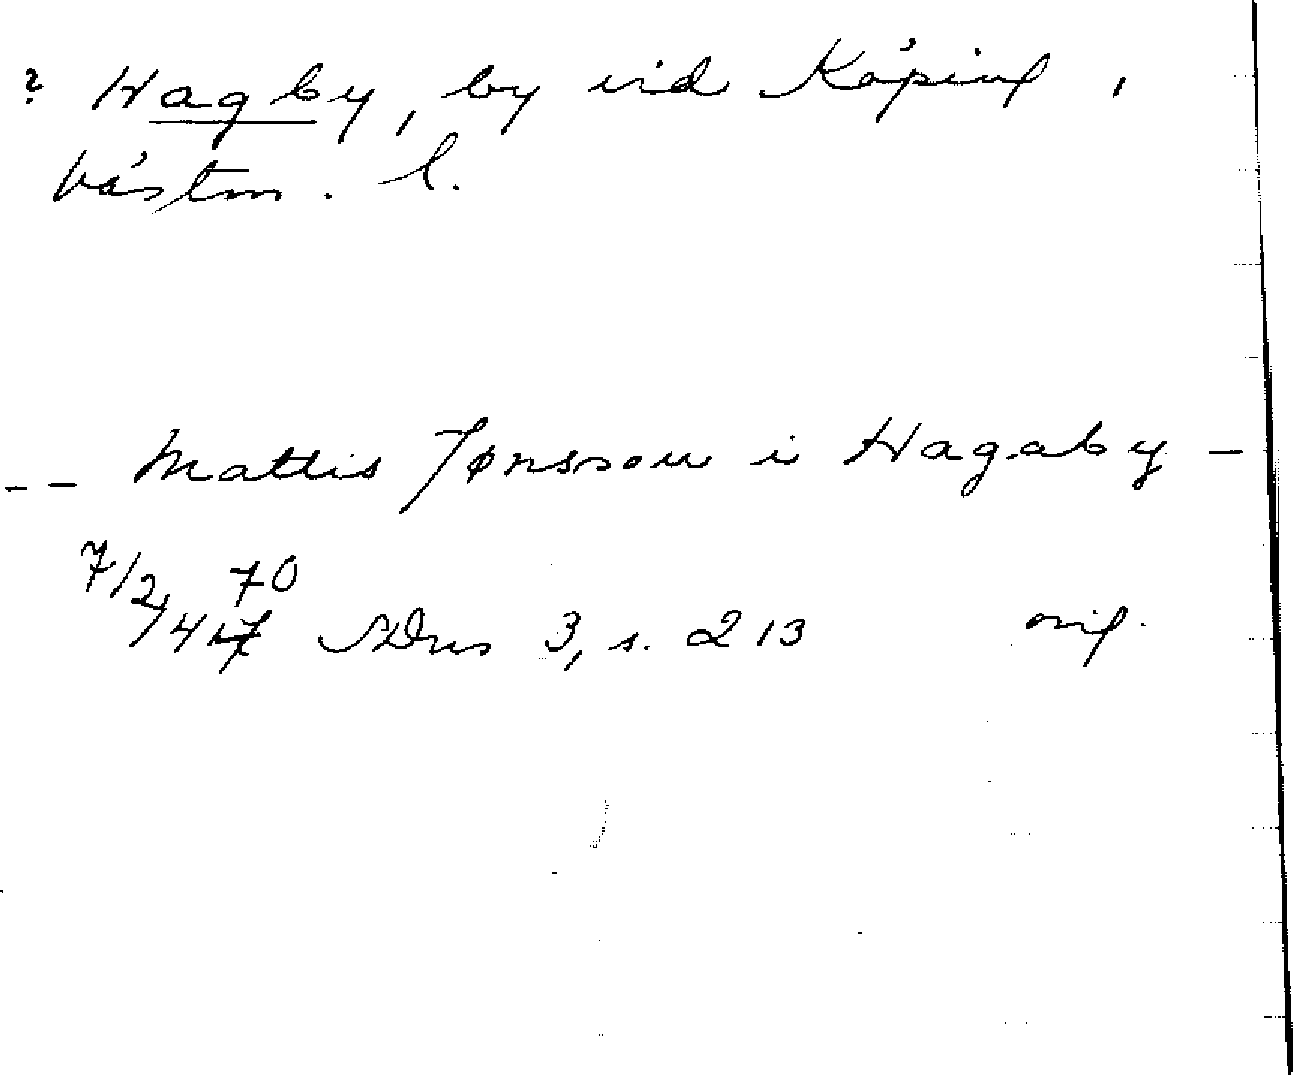 ? Hagby, by vid Köping,
Västm. l.
-- Mattis Jønsson i Hagaby -
7/2 70
1417 SDns 3, s. 213 orig.